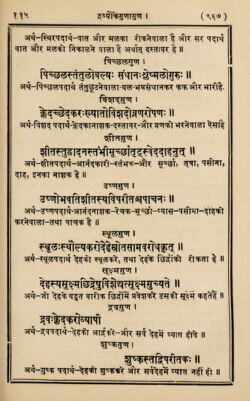 ११५ द्रव्योंकेगुणागुण । (९६७)
अर्थ-स्थिरपदार्थ-वात और मलका रोकनेवाला है और सर पदार्थ
वात और मलको निकालने वाला है अर्थात् दस्तावर है ॥
पिच्छलगुण ।
पिच्छलस्तंतुलोबल्यः संधानःश्लेष्मलोगुरुः ॥
अर्थ-पिच्छलपदार्थ तंतुछूटनेवाला-बल-भग्नसंधानकर कफ और भारीहै.
विशदगुण ।
क्लेदच्छेदकरःख्यातोविशदोव्रणरोपणः ॥
अर्थ-विशद पदार्थ-क्लेदकानाशक-दस्तावर-और व्रणको भरनेवाला ऐसाहै
शीतगुण ।
शीतस्तुह्लादनःस्तंभीमूर्च्छातृट्स्वेददाहनुत् ॥
अर्थ-शीतपदार्थ-आनंदकारी-स्तंभक-और मूर्च्छा, तृषा, पसीना,
दाह, इनका नाशक है ॥
उष्णगुण ।
उष्णोभवतिशीतस्यविपरीतश्चपाचनः ॥
अर्थ-उष्णपदार्थ-आनंदनाशक-रेचक-मूर्च्छा-प्यास-पसीना-दाहको
करनेवाला-तथा पाचक है ॥
स्थूलगुण ।
स्थूलःस्थौल्यकरोदेहेस्रोतसामवरोधकृत् ॥
अर्थ-स्थूलपदार्थ देहको स्थूलकरे, तथा देहके छिद्रोंकी रोकता है ॥
सूक्ष्मगुण ।
देहस्यसूक्ष्मछिद्रेषुविशेद्यत्सूक्ष्ममुच्यते ॥
अर्थ-जो देहके बहुत बारीक छिद्रोंमें प्रवेशकरे उसको सूक्ष्म कहतेहैं ॥
द्रवगुण ।
द्रवःक्लेदकरोव्यापी
अर्थ-द्रवपदार्थ-देहको आर्द्रकरे-और सर्व देहमें व्याप्त होवे ॥
शुष्कगुण ।
शुष्कस्तद्विपरीतकः ॥
अर्थ-शुष्क पदार्थ-देहको शुष्ककरे और सर्वदेहमें व्याप्त नहीं हो ॥